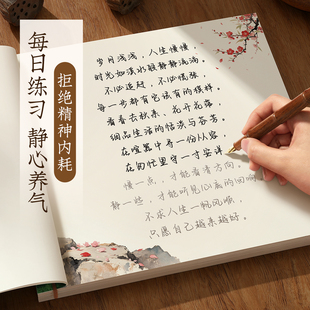 每日练习 静心养气
拒绝精神内耗
岁月浅浅，人生慢慢
时光如溪水般静静流淌
不必追赶，不必慌张
每一步都有它该有的模样
看春去秋来，花开花落
细品生活的恬淡与芬芳
在喧嚣中寻一份从容
在匆忙里守一寸安详
慢一点，才能看清方向
静一些，才能听见心底的回响
不求人生一帆风顺
只愿自己越来越好。